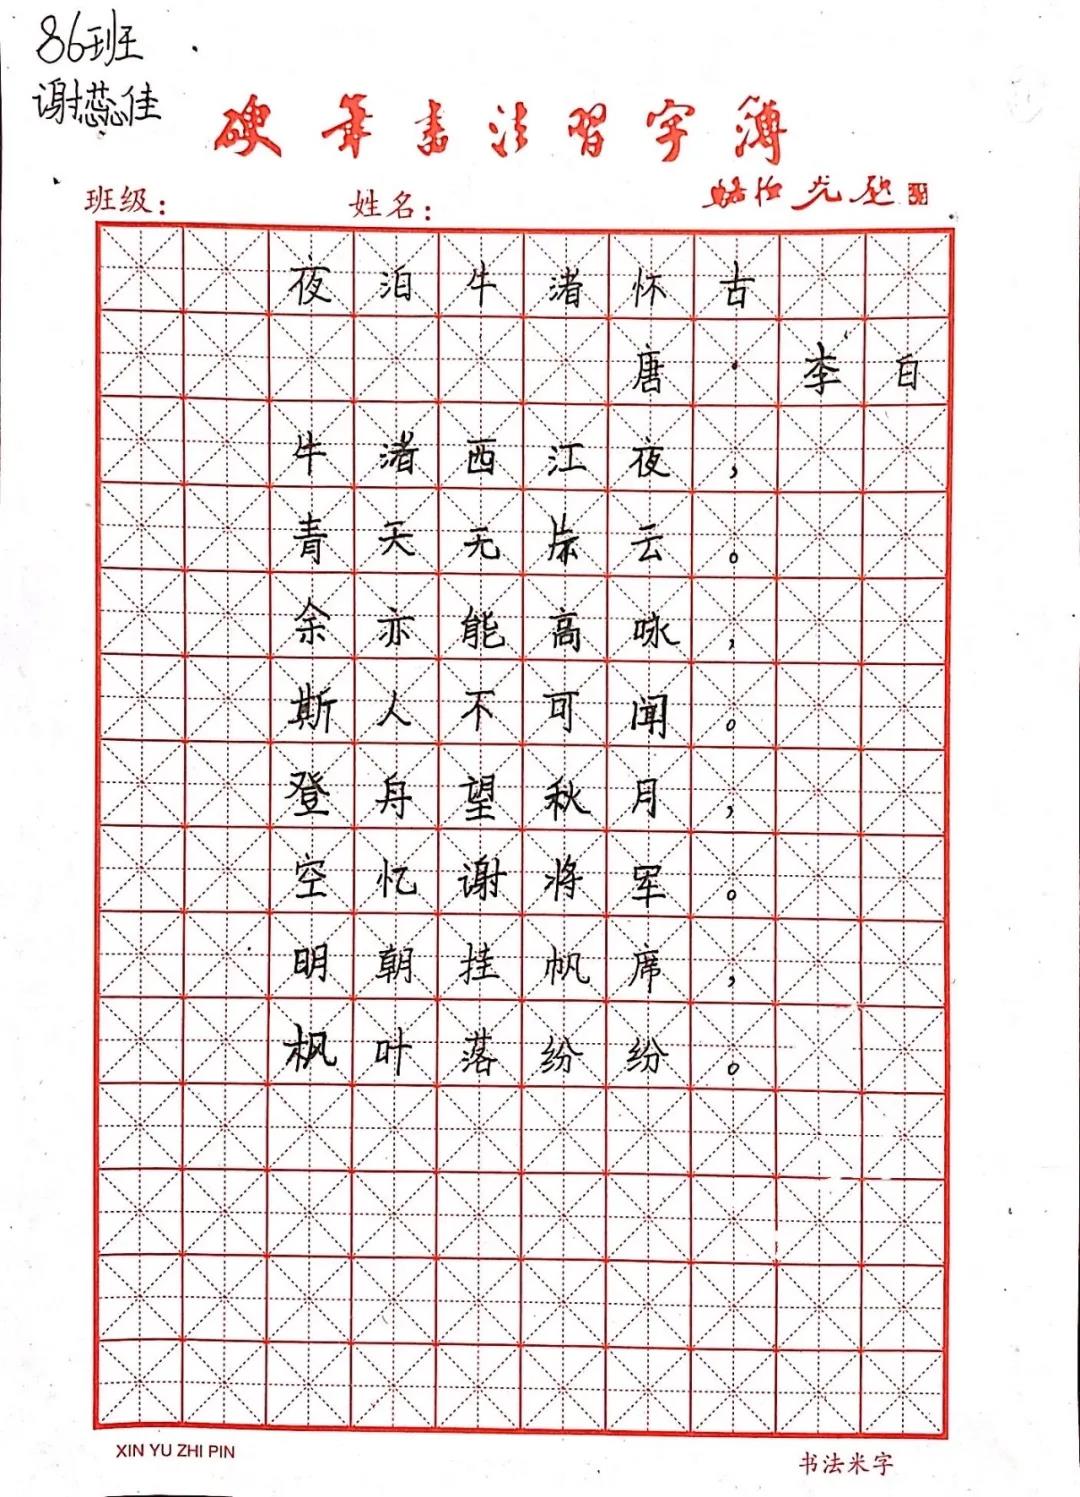 86班
谢蕊佳
硬筆書法習字簿
班级： 姓名：
夜泊牛渚怀古
唐·李白
牛渚西江夜，
青天无片云。
余亦能高咏，
斯人不可闻。
登舟望秋月，
空忆谢将军。
明朝挂帆席，
枫叶落纷纷。
XIN YU ZHI PIN
书法米字